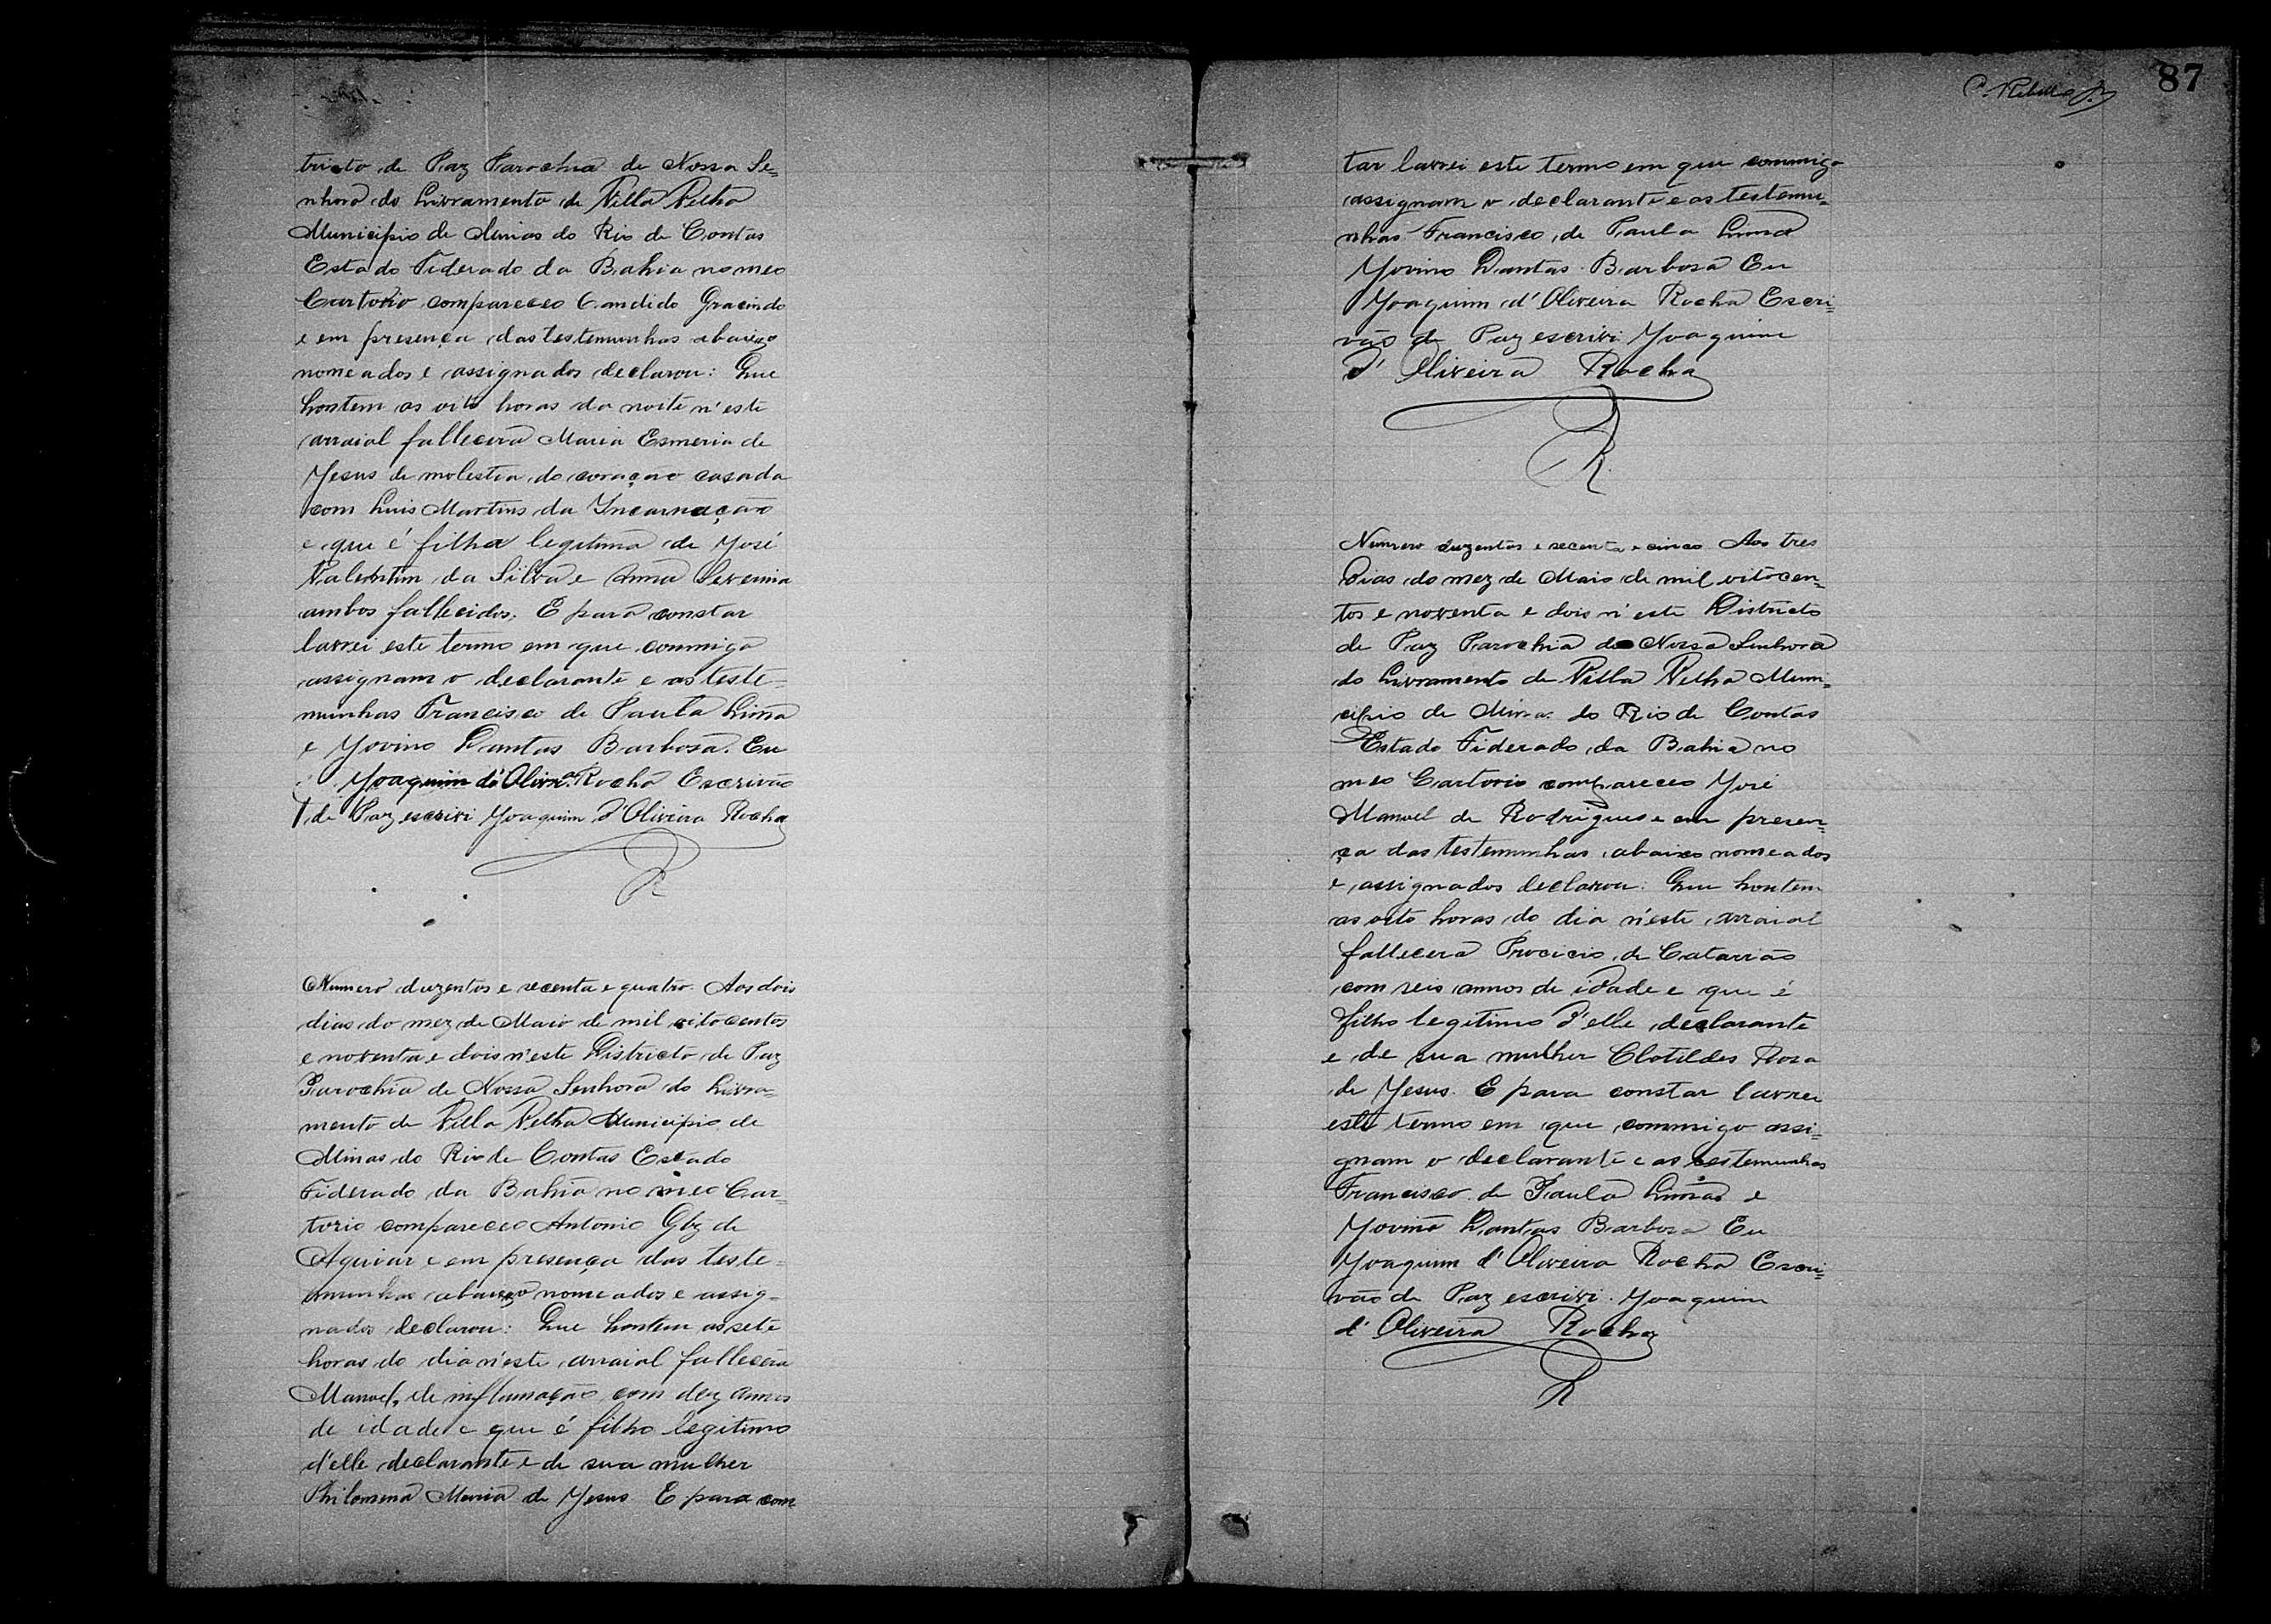 tricto de Paz Parochia de Nossa Se=
nhora do Livramento de Villa Velha
Municipio de Minas do Rio de Contas
Estado Fiderado da Bahia no meo
Cartorio compareceo Candido Gracindo
e em presença das testemunhas abaixo
nomeados e assignados declarou: Que
hontem as oito horas da noite n'este
arraial fallecera Maria Esmeria de
Jesus de molestia do coração casada
com Luis Martins da Incarnação
e que é filha legitima de José
Valentim da Silva e Anna Severina
ambos fallecidos. E para constar
lavrei este termo em que commigo
assignam o declarante e as teste=
munhas Francisco de Paula Lima
e Jovino Dantas Barbosa. Eu
Joaquim d'Olivrª Rocha Escrivão
de Paz escrivi Joaquim d'Oliveira Rocha
R
Numero duzentos e secenta e quatro. Aos dois
dias do mez de Maio de mil oitocentos
e noventa e dois n'este Districto de Paz
Parochia de Nossa Senhora do Livra=
mento de Villa Velha Municipio de
Minas do Rio de Contas Estado
Fiderado da Bahia no meo Car=
torio compareceo Antonio Glz de
Aguiar e em presença das teste=
munhas abaixo nomeados e assig=
nados declarou: Que hontem as sete
horas do dia n'este arraial fallecera
Manoel, de inflamação com dez annos
de idade e que é filho legitimo
d'elle declarante e de sua mulher
Philomena Maria de Jesus. E para cons
C. Rebello Jr.
87
tar lavrei este termo em que commigo
assignam o declarante e as testemu=
nhas Francisco de Paula Lima
Jovino Dantas Barbosa Eu
Joaquim d'Oliveira Rocha Escri=
vão de Paz escrivi Joaquim
d'Oliveira Rocha
R.
Numero duzentos e secenta e cinco Aos tres
dias do mez de Maio de mil oitocen=
tos e noventa e dois n'este Districto
de Paz Parochia de Nossa Senhora
do Livramento de Villa Velha Muni=
cipio de Minas do Rio de Contas
Estado Fiderado da Bahia no
meo Cartorio compareceo José
Manoel de Rodrigues e em presen=
ça das testemunhas abaixo nomeados
e assignados declarou: Que hontem
as oito horas do dia n'este arraial
fallecera Procicio de Catarrão
com seis annos de idade e que é
filho legitimo d'elle declarante
e de sua mulher Clotildes Rosa
de Jesus. E para constar lavrei
este termo em que commigo assi=
gnam o declarante e as testemunhas
Francisco de Paula Lima e
Jovino Dantas Barbosa Eu
Joaquim d'Oliveira Rocha Escri=
vão de Paz escrivi. Joaquim
d'Oliveira Rocha
R